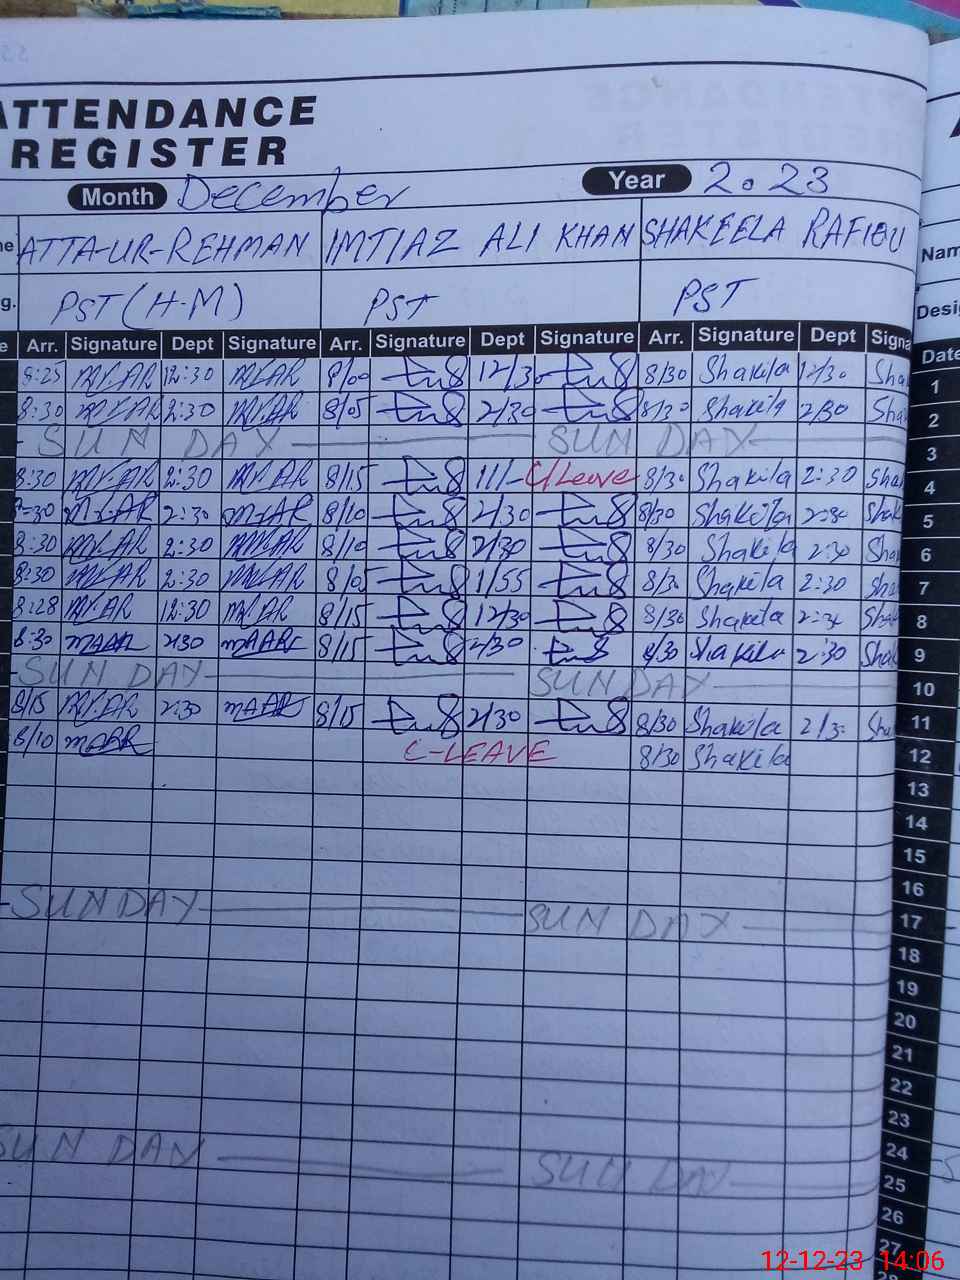 ATTENDANCE
REGISTER
Month December Year 2023
me ATTA-UR-REHMAN IMTIAZ ALI KHAN SHAKEELA RAFIQU Nam
g. PST (H-M) PST PST Desig
e Arr. Signature Dept Signature Arr. Signature Dept Signature Arr. Signature Dept Signa Date
8:25 12:30 8/00 12/30 8/30 Shakila 12/30 Sha 1
8:30 2:30 8/05 2/30 8/30 Shakila 2/30 Sha 2
SUN DAY SUN DAY 3
8:30 2:30 8/15 11/- C/Leave 8/30 Shakila 2:30 Sha 4
7-30 2:30 8/10 2/30 8/30 Shakila 2:30 Shak 5
8:30 2:30 8/10 2/30 8/30 Shakila 2:30 Sha 6
8:30 2:30 8/05 1/55 8/30 Shakila 2:30 Sha 7
8:28 12:30 8/15 12/30 8/30 Shakila 2:30 Sha 8
8:30 2:30 8/15 2/30 8/30 Shakila 2:30 Shak 9
SUN DAY SUNDAY 10
8/15 2:30 8/15 2/30 8/30 Shakila 2/30 Sha 11
8/10 C-LEAVE 8/30 Shakila 12
13
14
15
16
SUNDAY SUN DAY 17
18
19
20
21
22
23
SUN DAY SUN DAY 24
25
26
27
12-12-23 14:06